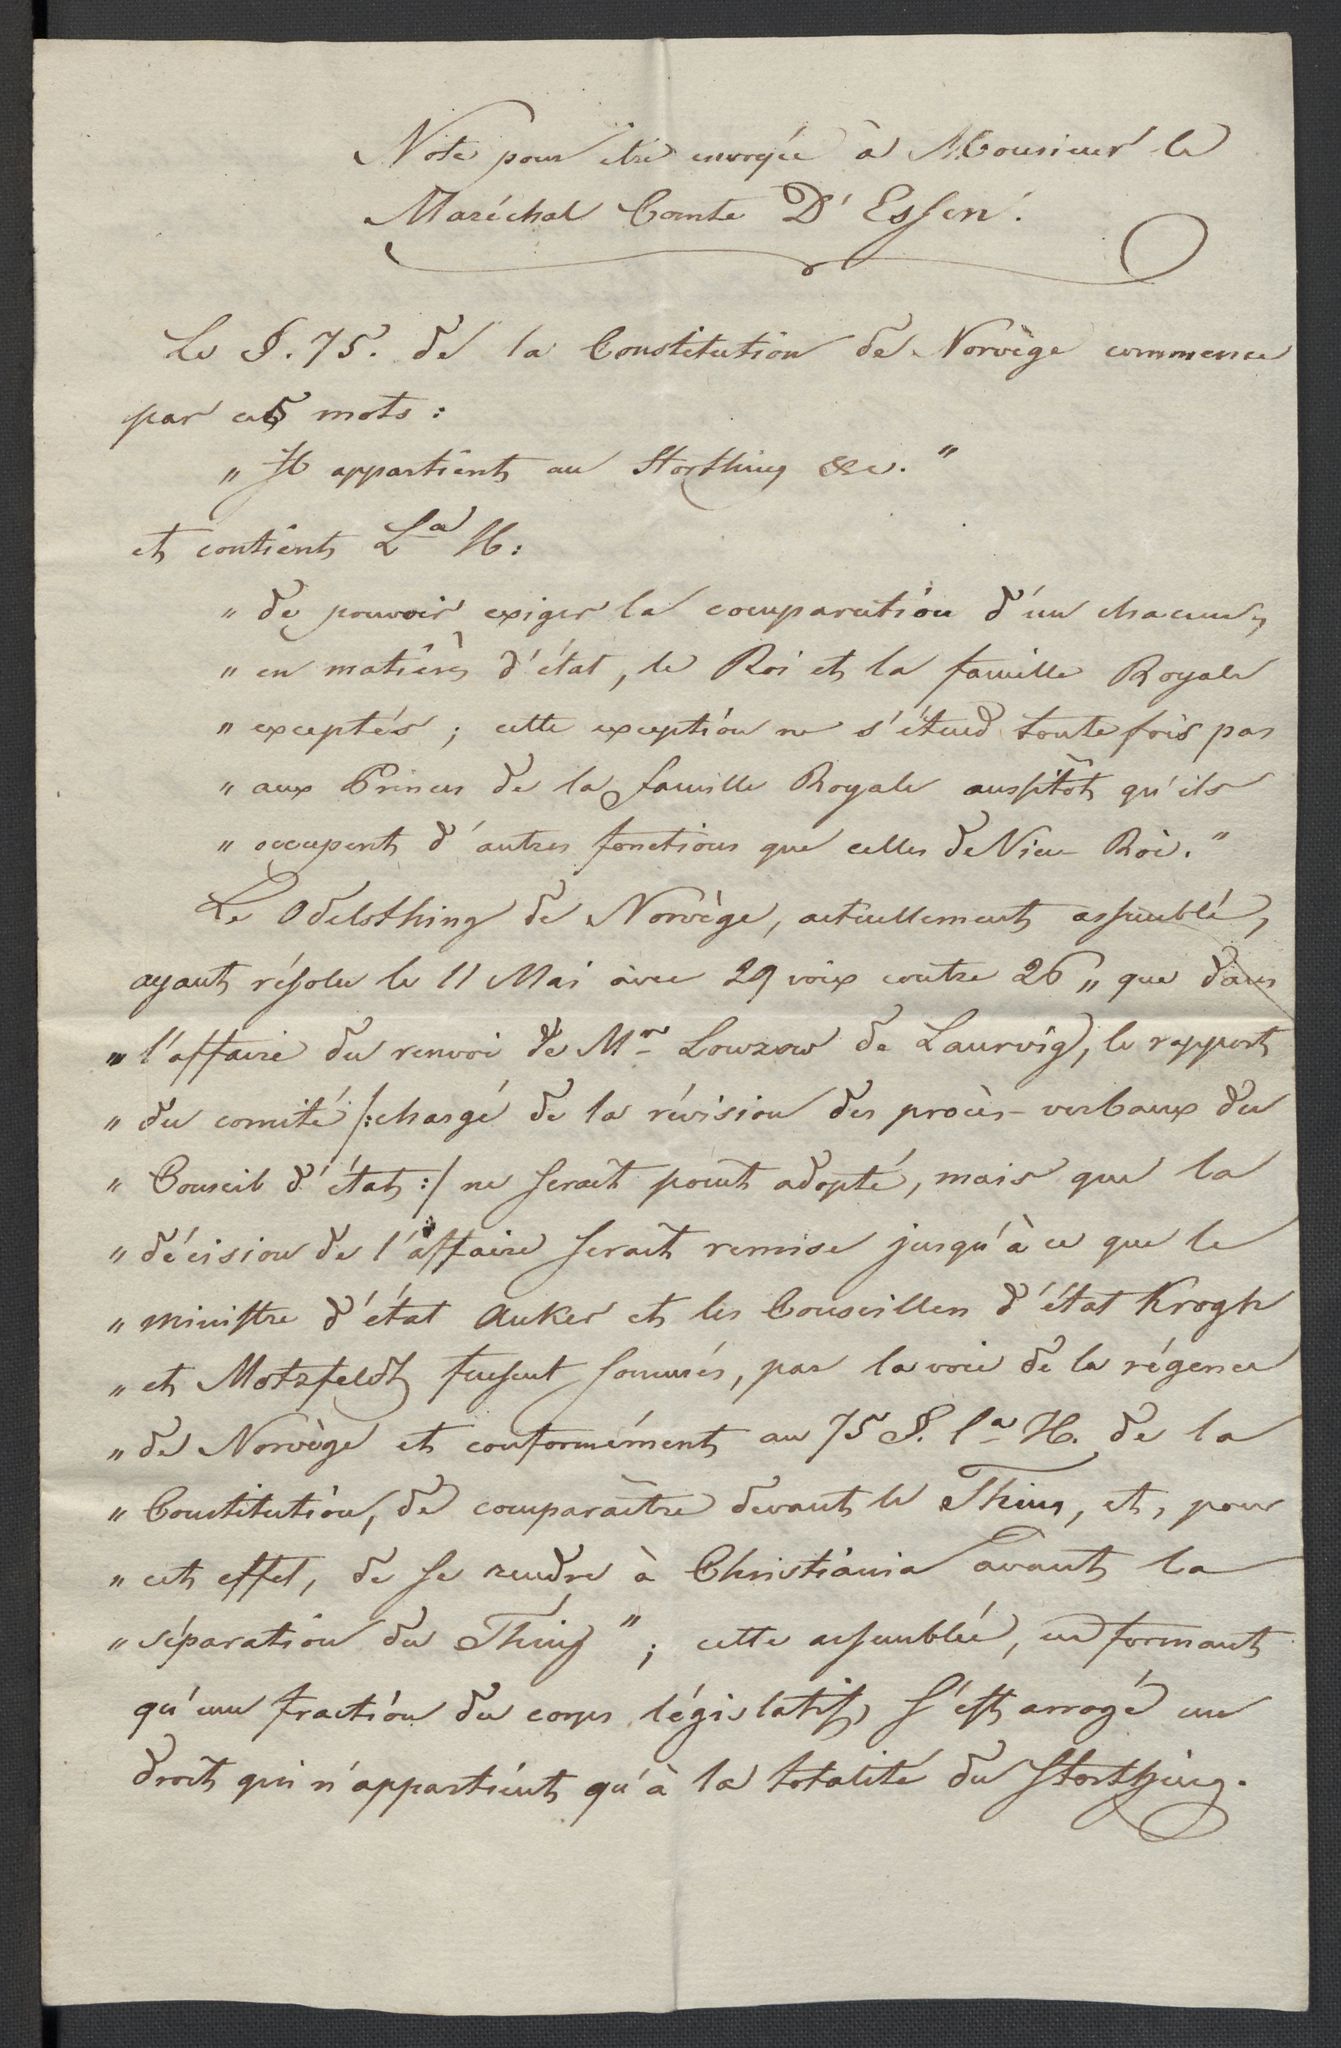 Note pour être envoyée à Monsieur le
Maréchal Comte D'Essen.
Le §. 75. de la Constitution de Norvège commence
par ces mots:
„ Il appartient au Storthing &c."
et contient L.a H:
„ de pouvoir exiger la comparution d'un chacun,
„ en matière d'état, le Roi et la famille Royale
„ exceptés; cette exception ne s'étend toute fois pas
„ aux Princes de la famille Royale aussitôt qu'ils
„ occupent d'autres fonctions que celles de Vice-Roi."
Le Odelsthing de Norvège, actuellement assemblé,
ayant résolu le 11 Mai avec 29 voix contre 26 „ que dans
„ l'affaire du renvoi de Mr. Lowzow de Laurvig, le rapport
„ du comité /: chargé de la révision des procès-verbaux du
„ Conseil d'état :/ ne serait point adopté, mais que la
„ décision de l'affaire serait remise jusqu'à ce que le
„ ministre d'état Anker et les Conseillers d'état Krogh
„ et Motzfeldt fussent sommés, par la voie de la régence
„ de Norvège et conformément au 75 §. l.a H. de la
„ Constitution, de comparaître devant le Thing, et, pour
„ cet effet, de se rendre à Christiania avant la
„ séparation du Thing"; cette assemblée, ne formant
qu'une fraction du corps législatif, s'est arrogé un
droit qui n'appartient qu'à la totalité du Storthing.